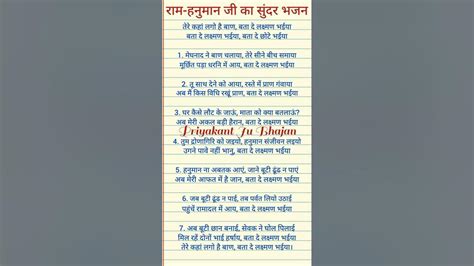 राम-हनुमान जी का सुंदर भजन
तेरे कहां लगो है बाण, बता दे लक्ष्मण भईया
बता दे लक्ष्मण भईया, बता दे छोटे भईया
1. मेघनाद ने बाण चलाया, तेरे सीने बीच समाया
मूर्छित पड़ा धरनि में आय, बता दे लक्ष्मण भईया
2. तू साथ देने को आया, रस्ते में प्राण गंवाया
अब मैं किस विधि रखूं प्राण, बता दे लक्ष्मण भईया
3. घर कैसे लौट के जाऊं, माता को क्या बतलाऊं?
अब मेरी अकल बड़ी हैरान, बता दे लक्ष्मण भईया
Priyakant Ju Bhajan
4. तुम द्रोणागिरि को जइयो, हनुमान संजीवन लइयो
उगने पावे नहीं भानु, बता दे लक्ष्मण भईया
5. हनुमान ना अबतक आएं, जाने बूटी ढूंढ न पाएं
अब मेरी आफत में है जान, बता दे लक्ष्मण भईया
6. जब बूटी ढूंढ न पाई, तब पर्वत लियो उठाई
पहुंचें रामादल में आय, बता दे लक्ष्मण भईया
7. अब बूटी छान बनाई, सेवक ने घोल पिलाई
मिल रहें दोनों भाई हर्षाय, बता दे लक्ष्मण भईया
तेरे कहां लगो है बाण, बता दे लक्ष्मण भईया।